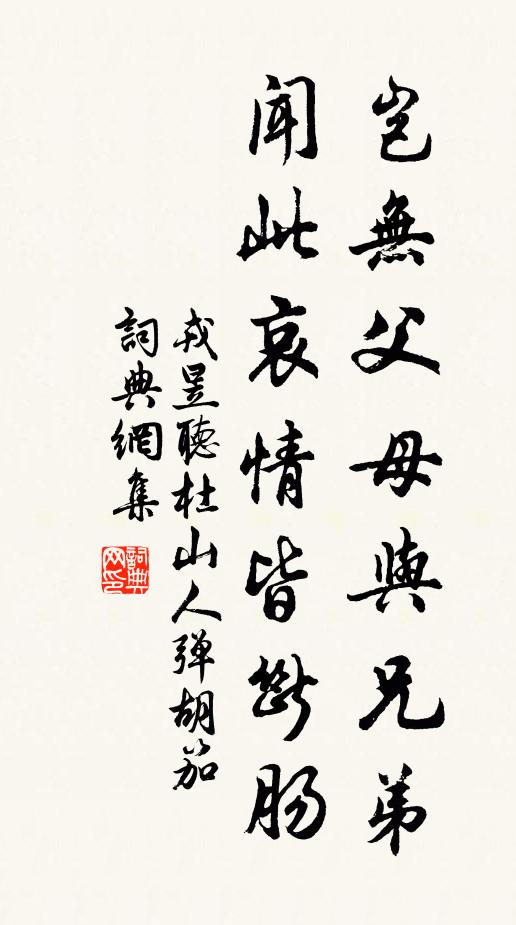 豈無父母與兄弟
聞此哀情皆斷腸
戎昱聽杜山人弹胡笳
詞典網集
詞典网印